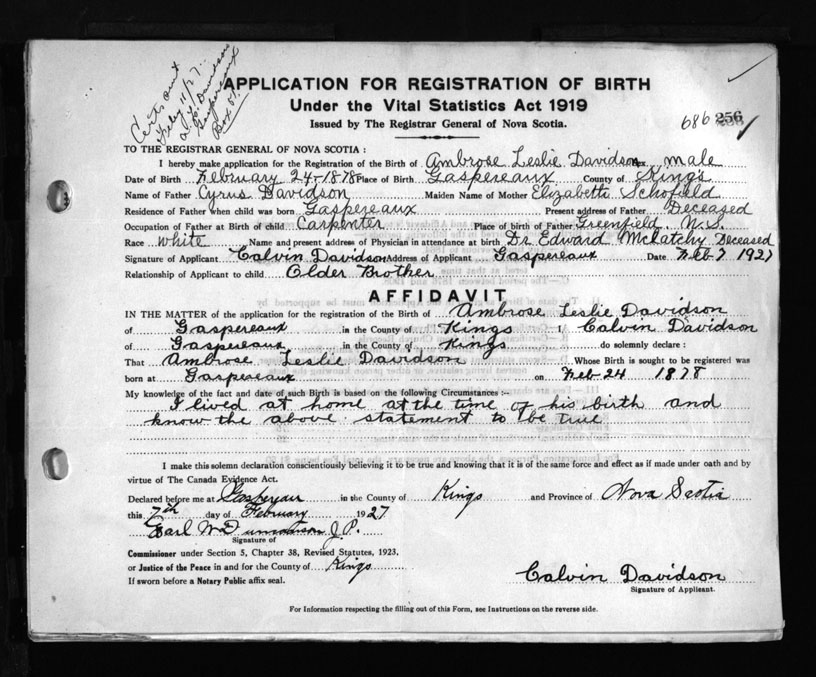 Certs out
Feby 11/27
Davidson
Gaspereaux
Box 81.
APPLICATION FOR REGISTRATION OF BIRTH
Under the Vital Statistics Act 1919
Issued by The Registrar General of Nova Scotia.
686 256
TO THE REGISTRAR GENERAL OF NOVA SCOTIA :
I hereby make application for the Registration of the Birth of Ambrose Leslie Davidson male
Date of Birth February 24-1878 Place of Birth Gaspereaux County of King's
Name of Father Cyrus Davidson Maiden Name of Mother Elizabeth Schofield
Residence of Father when child was born Gaspereaux Present address of Father Deceased
Occupation of Father at Birth of child Carpenter Place of birth of Father Greenfield, N.S.
Race white Name and present address of Physician in attendance at birth Dr. Edward McLatchy Deceased
Signature of Applicant Calvin Davidson Address of Applicant Gaspereaux Date Feb 7 1927
Relationship of Applicant to child Older Brother
AFFIDAVIT
IN THE MATTER of the application for the registration of the Birth of Ambrose Leslie Davidson
of Gaspereaux in the County of Kings I, Calvin Davidson
of Gaspereaux in the County of Kings do solemnly declare :
That Ambrose Leslie Davidson Whose Birth is sought to be registered was
born at Gaspereaux on Feb 24 1878
My knowledge of the fact and date of such Birth is based on the following Circumstances :-
I lived at home at the time of his birth and
know the above statement to be true
I make this solemn declaration conscientiously believing it to be true and knowing that it is of the same force and effect as if made under oath and by
virtue of The Canada Evidence Act.
Declared before me at in the County of Kings and Province of Nova Scotia
this 7th day of February 1927
Earl J.P.
Signature of
Commissioner under Section 5, Chapter 38, Revised Statutes, 1923.
or Justice of the Peace in and for the County of Kings
If sworn before a Notary Public affix seal.
Calvin Davidson
Signature of Applicant.
For Information respecting the filling out of this Form, see Instructions on the reverse side.